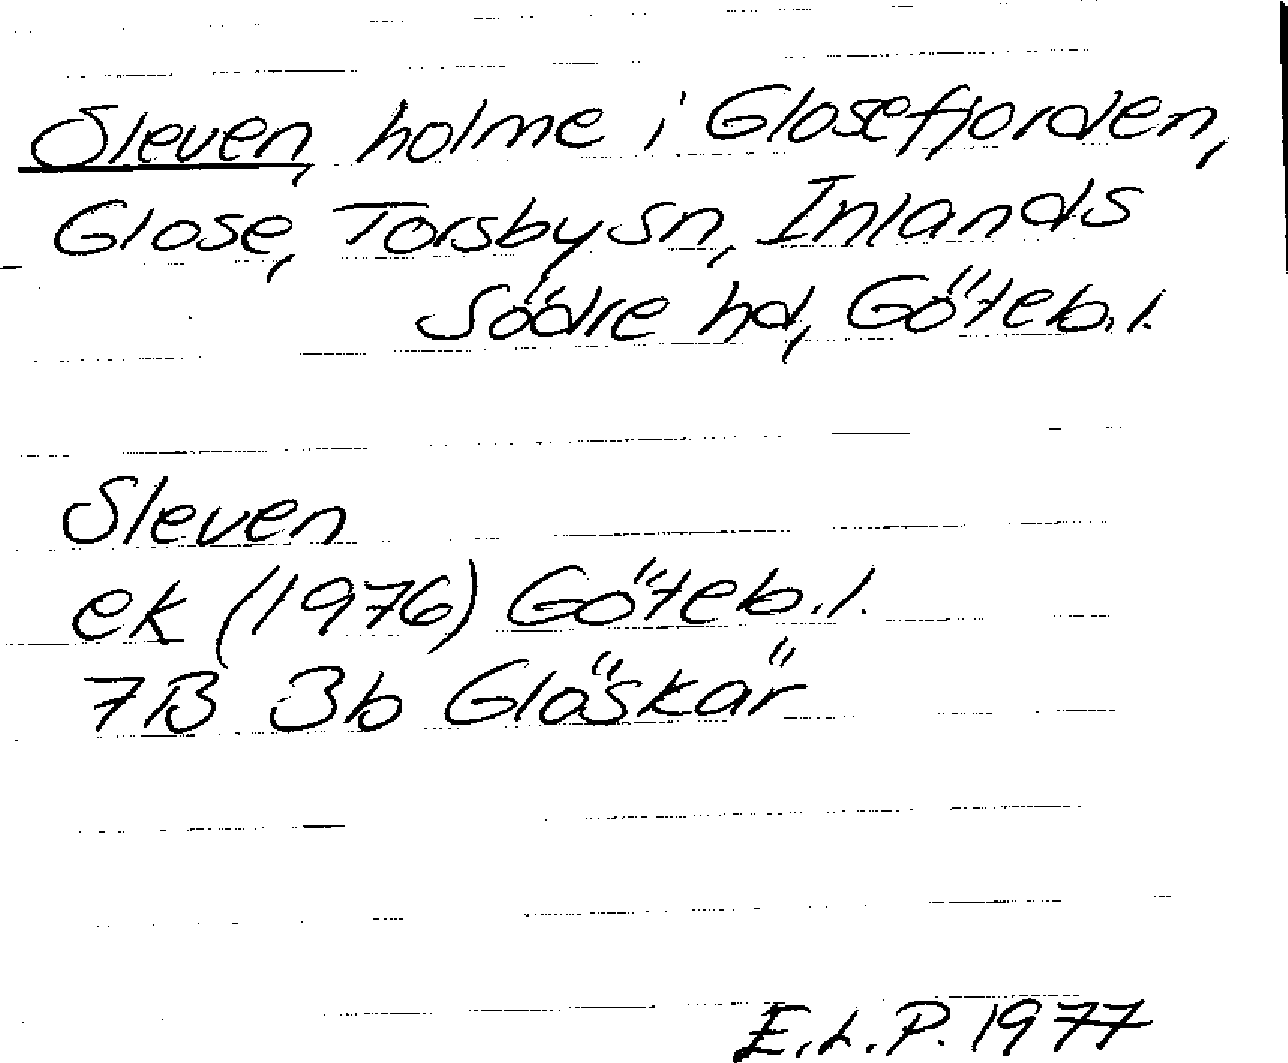 Sleven, holme i Glosefjorden,
Glose, Torsby sn, Inlands
Södre hd, Göteb. l.
Sleven
ek (1976) Göteb. l.
7B 3b Glöskär
E.L.P. 1977